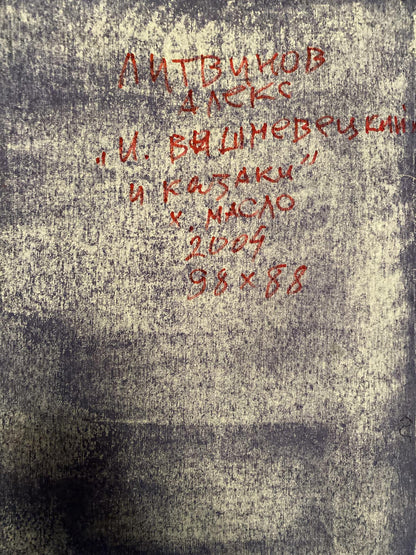 ЛИТВИНОВ
АЛЕКС
"И. ВИШНЕВЕЦКИЙ
И КАЗАКИ"
Х. МАСЛО
2009
98×88